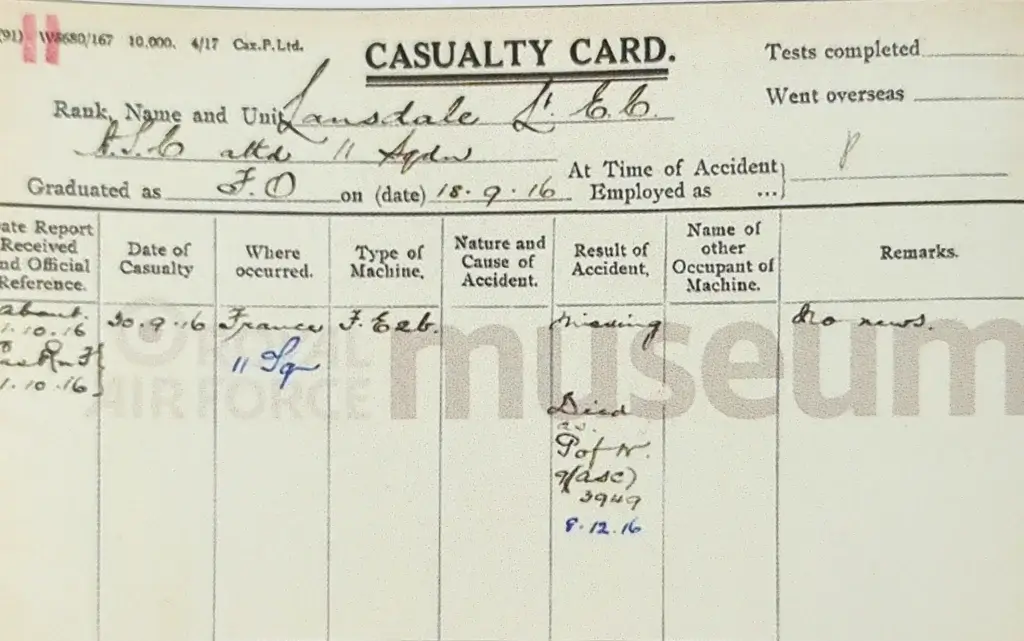 (91) W8680/167 10,000. 4/17 Cax.P.Ltd.
CASUALTY CARD.
Tests completed
Went overseas
Rank, Name and Unit Lansdale Lt. E. C.
A.S.C attd 11 Sqdn
At Time of Accident
Employed as ...
P
Graduated as F.O on (date) 18.9.16
ate Report Received nd Official Reference.
Date of Casualty
Where occurred.
Type of Machine.
Nature and Cause of Accident.
Result of Accident.
Name of other Occupant of Machine.
Remarks.
about.
1.10.16
1.10.16
30.9.16
France
11 Sq
F.E2b.
Missing
Died
as
P of W.
9(asc)
3949
8.12.16
No news.
ROYAL
AIR FORCE
museum